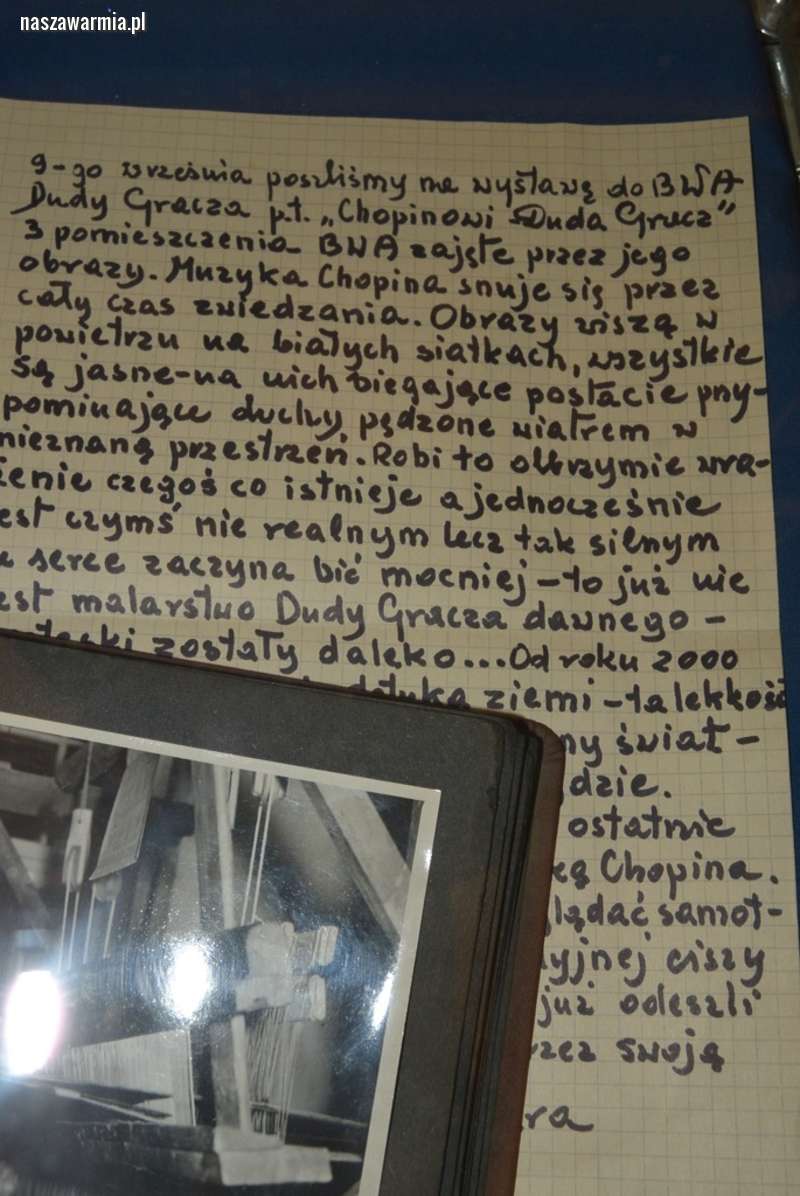 naszawarmia.pl
9-go września poszliśmy na wystawę do BWA
Dudy Gracza p.t. „Chopinowi Duda Gracz"
3 pomieszczenia BWA zajęte przez jego
obrazy. Muzyka Chopina snuje się przez
cały czas zwiedzania. Obrazy wiszą w
powietrzu na białych siatkach, wszystkie
są jasne-na nich biegające postacie pny-
pominające duchy, pędzone wiatrem w
nieznaną przestrzeń. Robi to olbrzymie wra-
żenie czegoś co istnieje a jednocześnie
est czymś nie realnym lecz tak silnym
serce zaczyna bić mocniej – to już nie
est malarstwo Dudy Gracza dawnego –
zostały daleko... Od roku 2000
ziemi – ta lekkość
ny świat –
dzie.
ostatnie
Chopina.
glądać samot-
yjnej ciszy
już odeszli
rzez swoją
ra